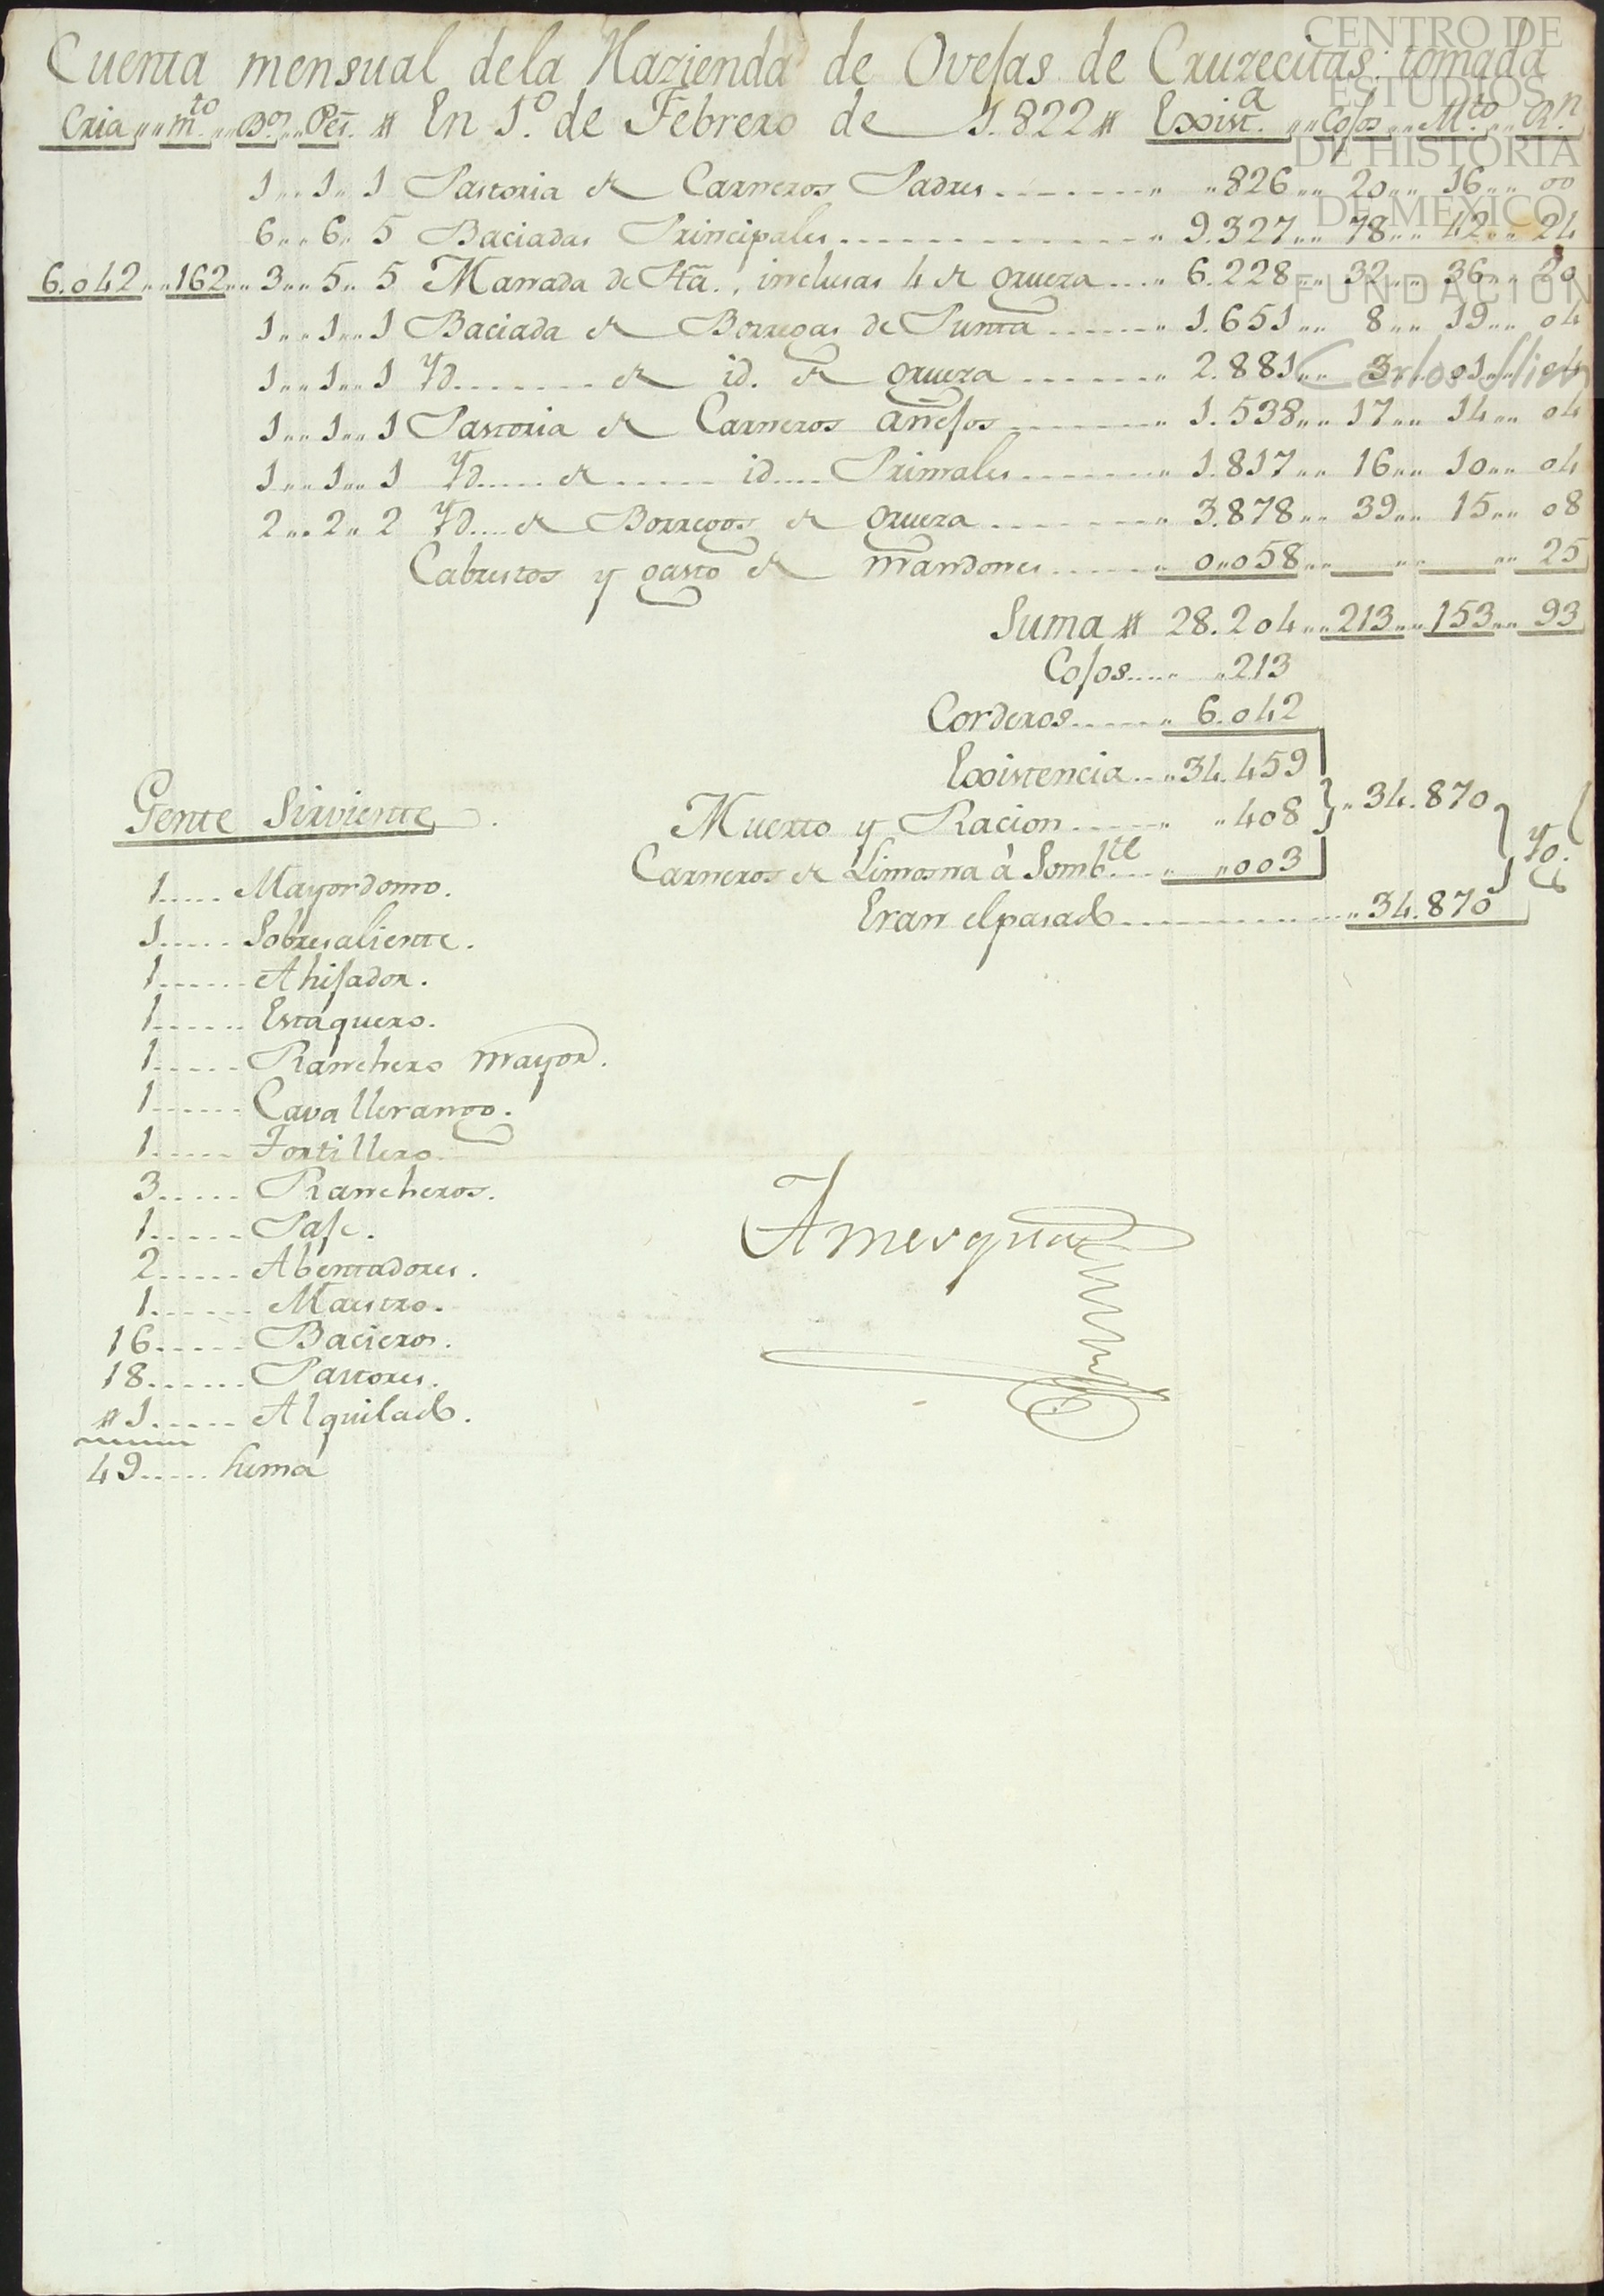 Cuenta mensual dela Hazienda de Ovejas de Cruzecitas: tomada
Cria,,,,m.to,,,,B.os,,,,Pes. # En 1.º de Febrero de 1.822 # Exist.a,,,,Cojos,,,,M.to,,,,R.n
1,,,,1,,1 Pastoria de Carneros Padres ,,826,,,,20,,,,16,,,,00
6,,,,6,,5 Baciadas Principales 9.327,,,,78,,,,42,,,,24
6.042,,,,162,,,,3,,,,5,,5 Manada de Hta., inclusas 4 de grueza 6.228,,,,32,,,,36,,,,20
1,,,,1,,,,1 Baciada de Borregas de Punta 1.651,,,,8,,,,19,,,,04
1,,,,1,,,,1 Yd. de id. de grueza 2.881,,,,3,,,,01,,,,04
1,,,,1,,,,1 Pastoria de Carneros añejos 1.538,,,,17,,,,14,,,,04
1,,,,1,,,,1 Yd. de id. Primales 1.817,,,,16,,,,10,,,,04
2,,,,2,,2 Yd. de Borregos de grueza 3.878,,,,39,,,,15,,,,08
Cabrestos y gasto de mandones 0,,058,,,, ,,,, ,,,,25
Suma # 28.204,,,,213,,,,153,,,,93
Cojos ,,213
Corderos 6.042
Existencia 34.459
Muerto y Racion ,,408 34.870
Carneros de Limosna à Somb.te ,,003
Eran el pasado 34.870
Yg.
Gente Sirviente.
1 Mayordomo.
1 Sobresaliente.
1 Ahijador.
1 Estaquero.
1 Ranchero mayor.
1 Cavallerango.
1 Tortillero.
3 Rancheros.
1 Paje.
2 Abentadores.
1 Maestro.
16 Bacieros.
18 Pastores.
#1 Alquilado.
49 Suma
Amesquita
CENTRO DE
ESTUDIOS
DE HISTORIA
DE MÉXICO
FUNDACIÓN
Carlos Slim